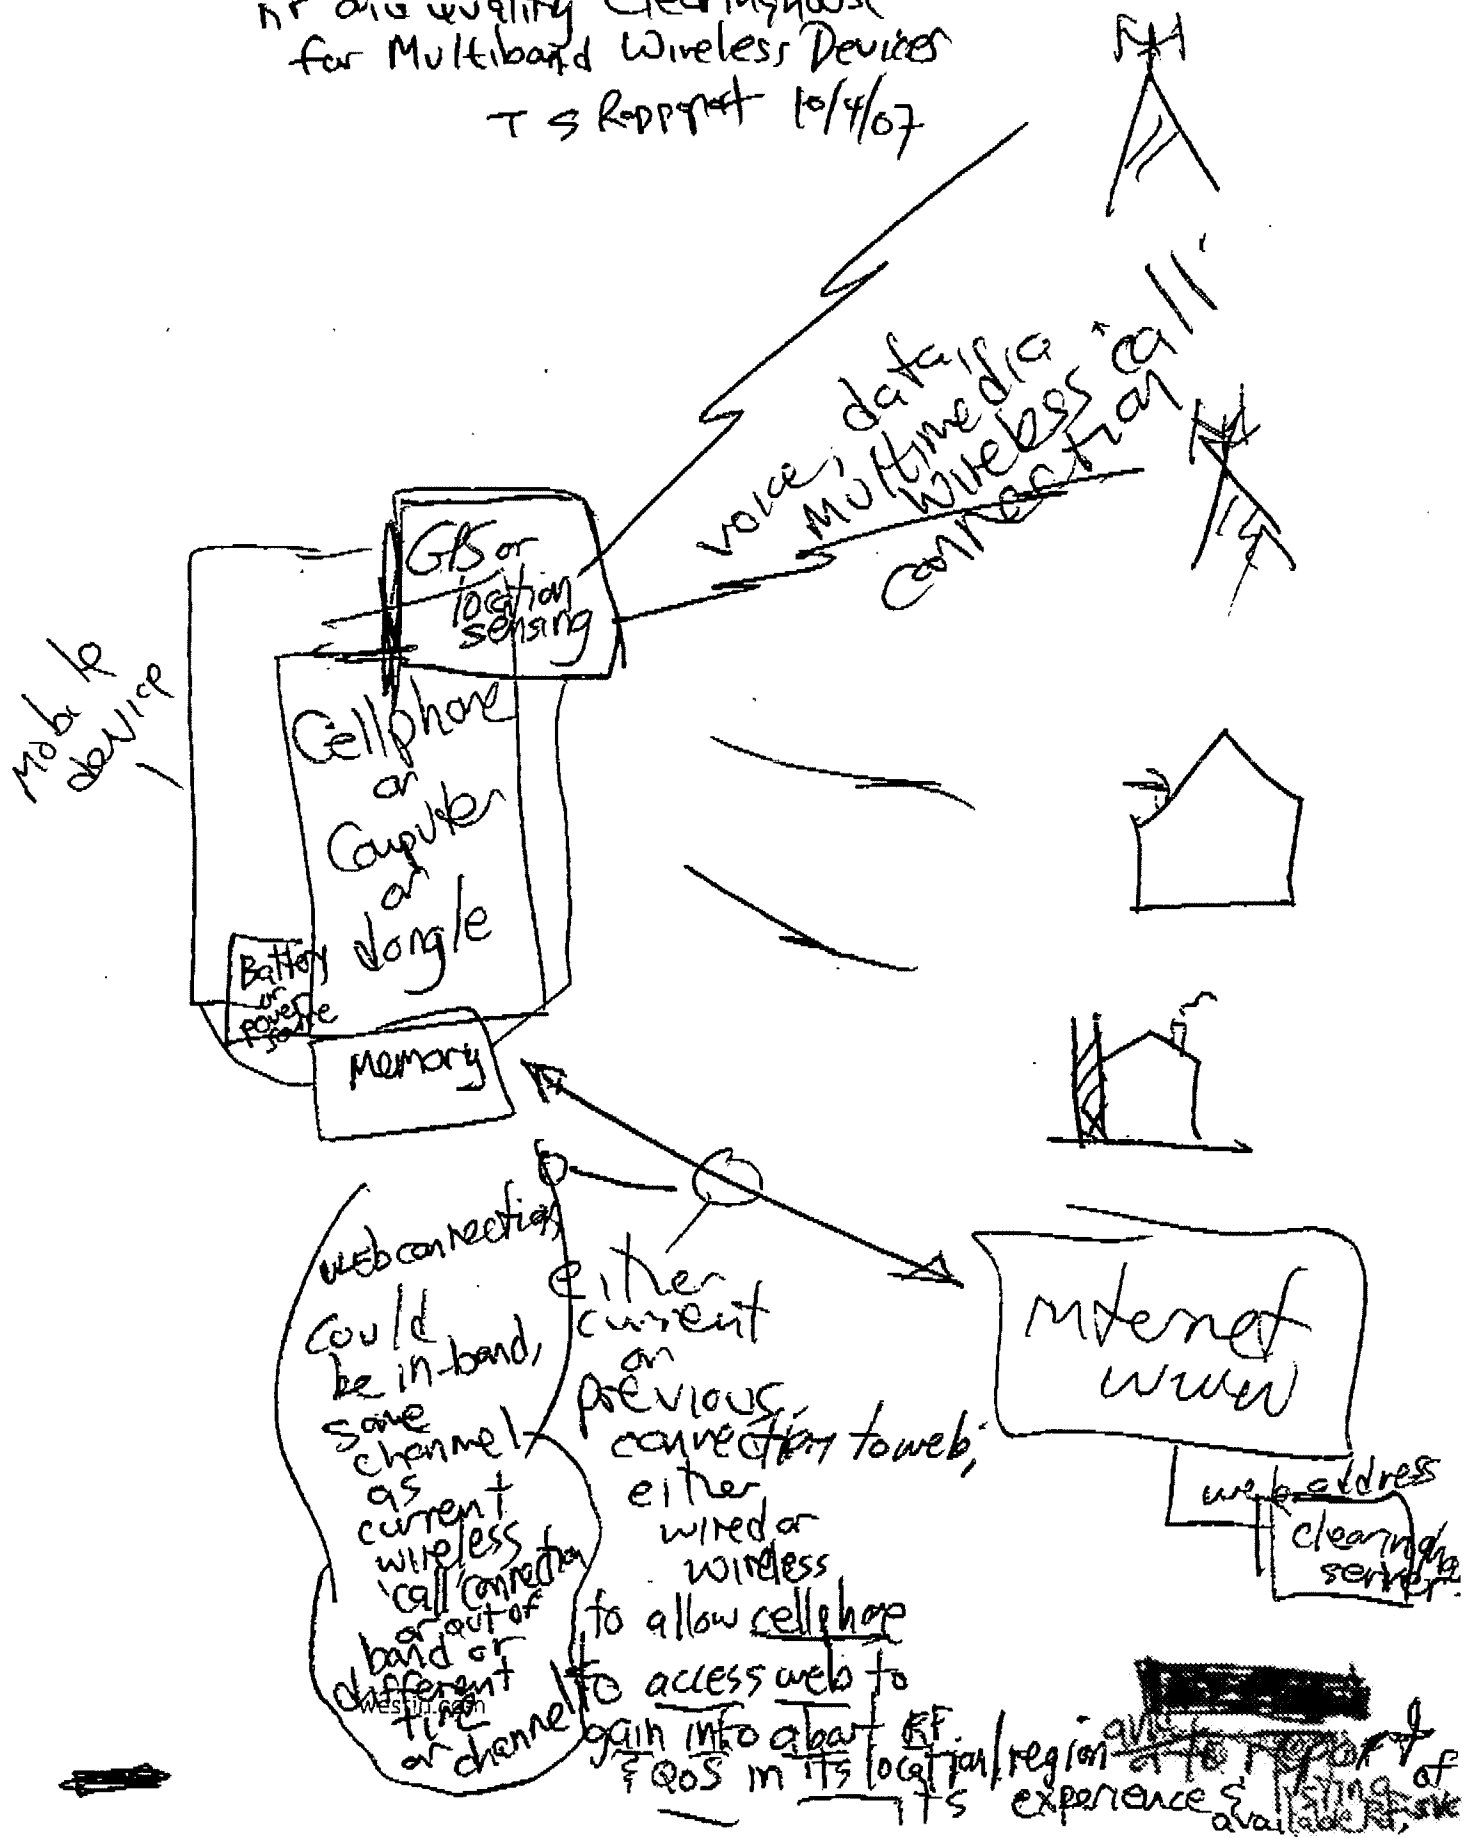 RF and Quality Clearinghouse
for Multiband Wireless Devices
T S Rappaport 10/4/07
voice, data,
multimedia
wireless "call"
connection
GPS or
location
sensing
Mobile
device
Cellphone
or
Computer
or
dongle
Battery
or
power
source
Memory
web connection
could
be in-band,
same
channel
as
current
wireless
'call' connection
or out of
band or
different
time
or channel
westin.com
either
current
or
previous
connection to web;
either
wired or
wireless
to allow cellphone
to access web to
gain info about RF
& QoS in its location/region
& to report
of
its experience &
available
Internet
www
web address
clearinghouse
server